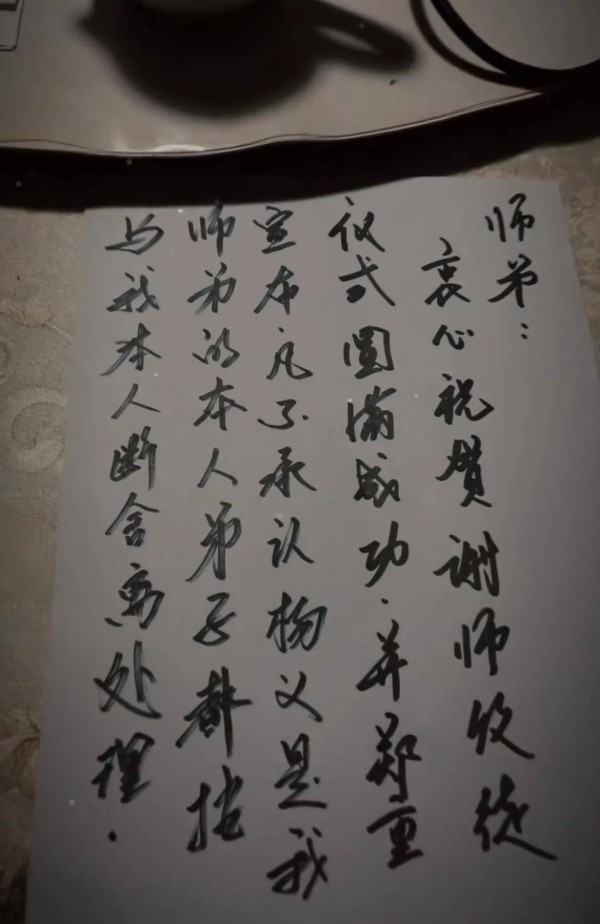 师弟：
衷心祝贺谢师收徒
仪式圆满成功．并郑重
宣布凡不承认杨义是我
师弟的本人弟子都按
与我本人断舍离处理．